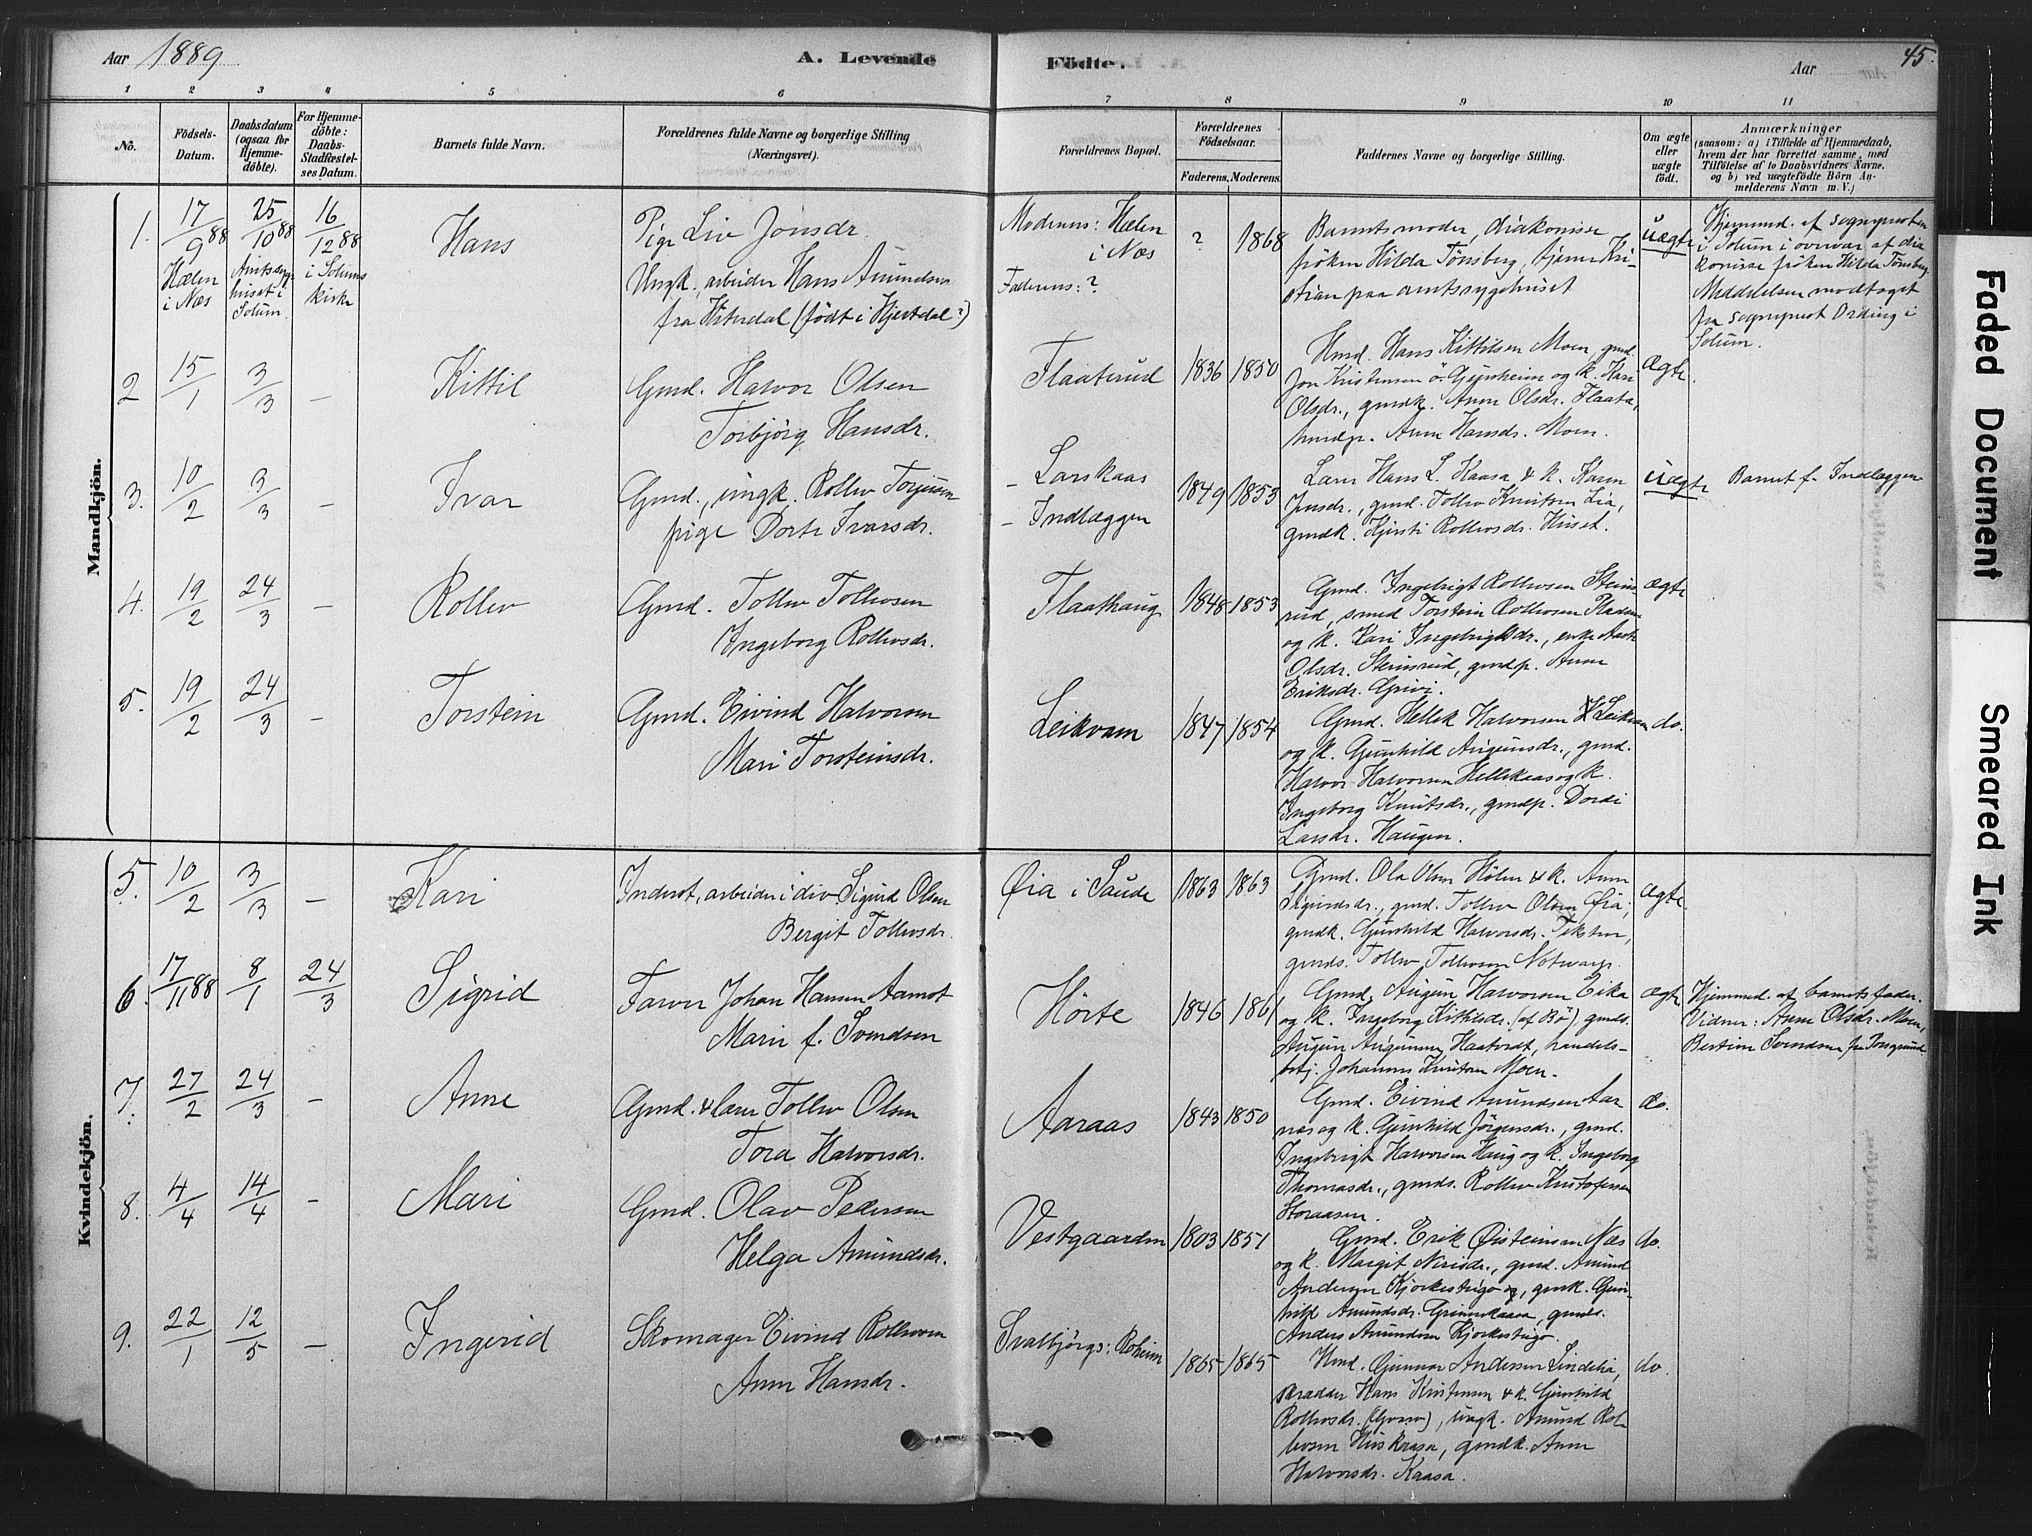 Aar 1889
A. Levende
Födte.
Aar
45.
1 2 3 4 5 6 7 8 9 10 11
No.
Födsels-
Datum.
Daabsdatum
(ogsaa for
Hjemme-
döbte).
For Hjemme-
döbte:
Daabs-
Stadfæstel-
ses Datum.
Barnets fulde Navn.
Forældrenes fulde Navne og borgerlige Stilling
(Næringsvei).
Forældrenes Bopæl.
Forældrenes
Födselsaar.
Faderens. Moderens.
Faddernes Navne og borgerlige Stilling.
Om ægte
eller
uægte
födt.
Anmærkninger
(saasom: a) i Tilfælde af Hjemmedaab,
hvem der har forrettet samme, med
Tilföielse af to Daabsvidners Navne.
og b) ved uægtefödte Börn An-
melderens Navn m. V.)
Mandkjön.
1. 17/9 88 25/10 88 16/12 88
Hælen
i Næs
Amtssyge-
huset i
Solum.
i Solums
kirke
Hans
Pige Liv Jonsdr.
Ungk., arbeider Hans Amundsen
fra Hiterdal (født i Hjertdal?)
Moderens: Hælen
i Næs
Faderens: ?
? 1868
Barnets moder, diakonisse
frøken Hilda Tønsberg, tjener Kri-
stian paa amtssygehuset
uægte
Hjemmed. af sognepresten
i Solum i overvær af dia
konisse frøken Hilda Tønsberg.
Meddelelsen modtaget
fra sogneprest Ording i
Solum.
2 15/1 3/3 –
Kittil
Gmd. Halvor Olsen
Torbjörg Hansdr.
Flaaterud
1836 1850
Hmd. Hans Kittilsen Moen, gmd.
Jon Kristensen ö. Gjernheim og k. Kari
Olsdr., gmdk. Anne Olsdr. Flaata,
hmdp. Anne Hansdr. Moen.
ægte.
3. 10/2 3/3 –
Ivar
Gmd., ungk. Rollev Torjussen
pige Dorte Ivarsdr.
– Larskaas
– Indlæggen
1849 1853
Lærer Hans L. Kaasa & k. Karen
Jensdr., gmd. Tollev Knutsen Lia,
gmdk. Kjersti Rollevsdr. Huset.
uægte
Barnet f. Indlæggen
4. 19/2 24/3 –
Rollev
Gmd. Tollev Tollevsen
Ingeborg Rollevsdr.
Flaathaug
1848 1853
Gmd. Ingebrigt Rollevsen Steins
rud, smed Torstein Rollevsen
og k. Kari Ingebrigtsdr., enke Aaste
Olsdr. Steinsrud, gmdp. Anne
Eriksdr. Grivi.
ægte
5. 19/2 24/3 –
Torstein
Gmd. Eivind Halvorsen
Mari Torsteinsdr.
Leikvam
1847 1854
Gmd. Hellek Halvorsen Leikvam
og k. Gunhild Augunsdr., gmd.
Halvor Halvorsen Hellekaas og k.
Ingeborg Knutsdr., gmdp. Dordi
Larsdr. Haugen.
do.
Kvindekjön.
5. 10/2 3/3 –
Kari
Inderst, arbeider i div. Sigurd Olsen
Bergit Tollevsdr.
Øia i Saude
1863 1863
Gmd. Ola Olsen Hølen & k. Anne
Sigurdsdr., gmd. Tollev Olsen Øia,
gmdk. Gunhild Halvorsdr.
gmds. Tollev Tollevsen
ægte.
6. 17/11 88 8/1 24/3
Sigrid
Farver Johan Hansen Aamot
Marie f. Svendsen
Hörte
1846 1861
Gmd. Augun Halvorsen Eika
og k. Ingeborg Kittilsdr. (af Bø), gmds.
Augun Augunsen Haatvedt, handels-
betj. Johannes Knutsen Moen.
ægte
Hjemmed. af barnets fader.
Vidner: Anne Olsdr. Moen,
Bertine Svendsen fra Porsgrund
7. 27/2 24/3 –
Anne
Gmd. & lærer Tollev Olsen
Tora Halvorsdr.
Aaraas
1843 1850
Gmd. Eivind Amundsen Aar
næs og k. Gunhild Jørgensdr., gmd.
Ingebrigt Halvorsen Haug og k. Ingeborg
Thomasdr., gmds. Rollev Kristofersen
Horaasen.
do.
8. 4/4 14/4 –
Mari
Gmd. Olav Pedersen
Helga Amundsdr.
Vestgaarden
1803 1851
Gmd. Erik Øisteinsen Næs
og k. Margit Nirisdr., gmd. Amund
Andersen Kjorkestugo, gmdk. Gun-
hild Amundsdr. Grimskaasa, gmds.
Anders Amundsen Kjorkestugo.
do.
9. 22/1 12/5 –
Ingerid
Skomager Eivind Rollevsen
Anne Hansdr.
Svalbjörgs: Roheim
1865 1865
Hmd. Gunnar Andersen Lindelia,
skrædder Hans Kristensen & k. Gunhild
Rollevsdr., ungk. Amund Rol-
levsen Huskaasa, gmdk. Anne
Halvorsdr. Kaasa.
do.
Faded Document
Smeared Ink